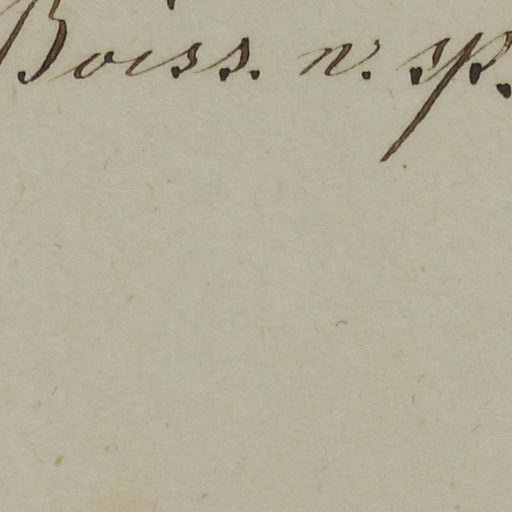 Boiss. n. sp.